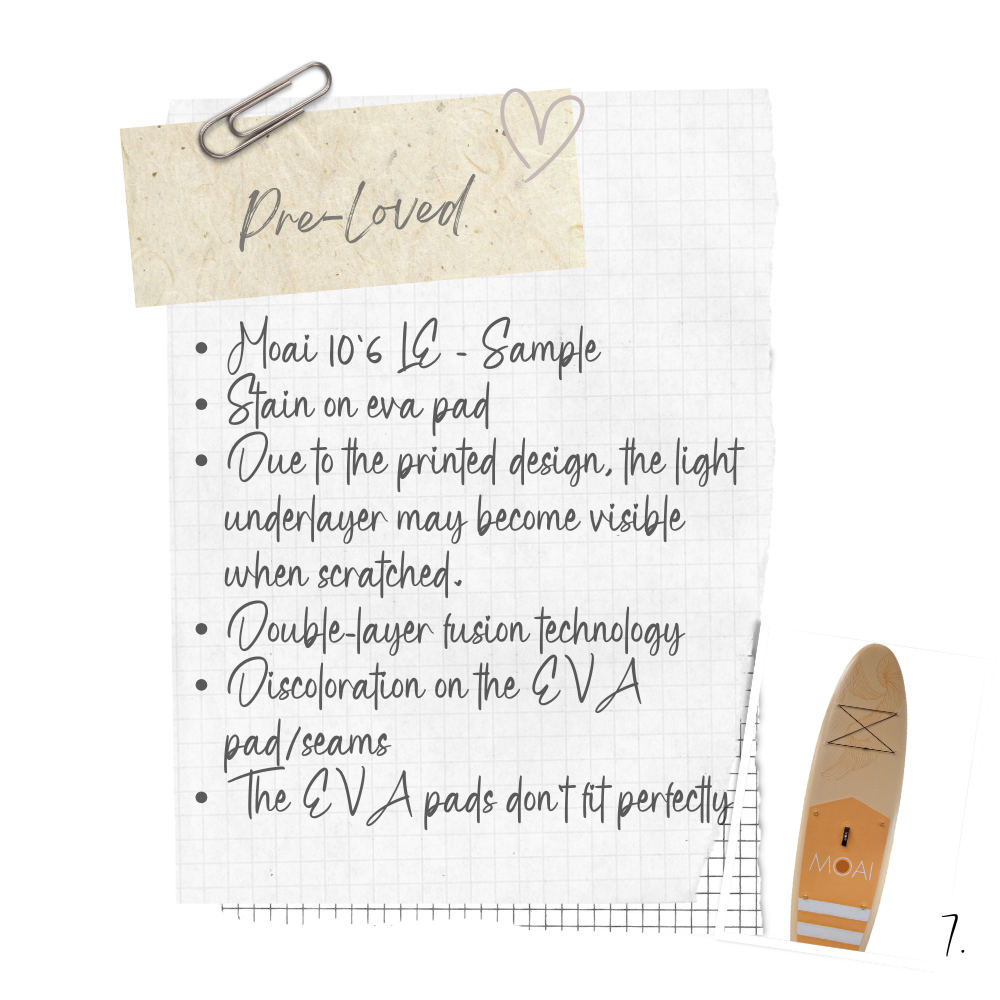 Pre-Loved
• Moai 10`6 LE - Sample
• Stain on eva pad
• Due to the printed design, the light
underlayer may become visible
when scratched.
• Double-layer fusion technology
• Discoloration on the EVA
pad/seams
• The EVA pads don't fit perfectly
MOAI
7.